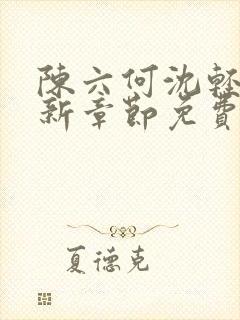 陳六何沈輕
新章節免費
夏德克